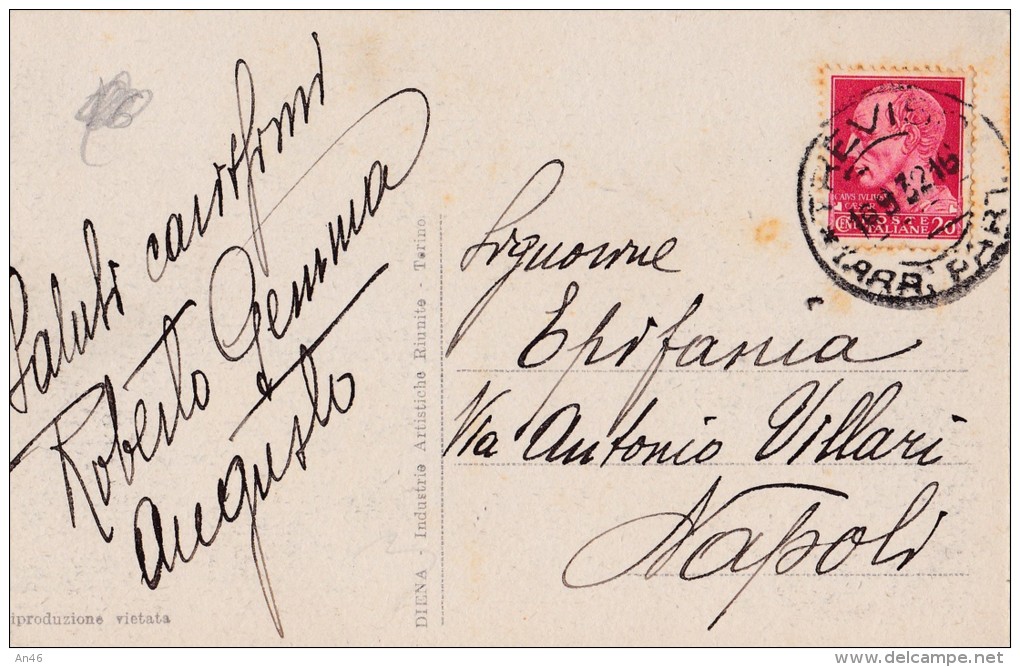 Saluti carissimi
Roberto Gemma
Augusto
riproduzione vietata
DIENA - Industrie Artistiche Riunite - Torino
CAIVS IVLIVS
CÆSAR
POSTE
CENT. ITALIANE 20
TREVISO
9 32 16
*(ARR. PART
Signorine
Epifania
Via Antonio Villari
Napoli
An46
delcampe.net